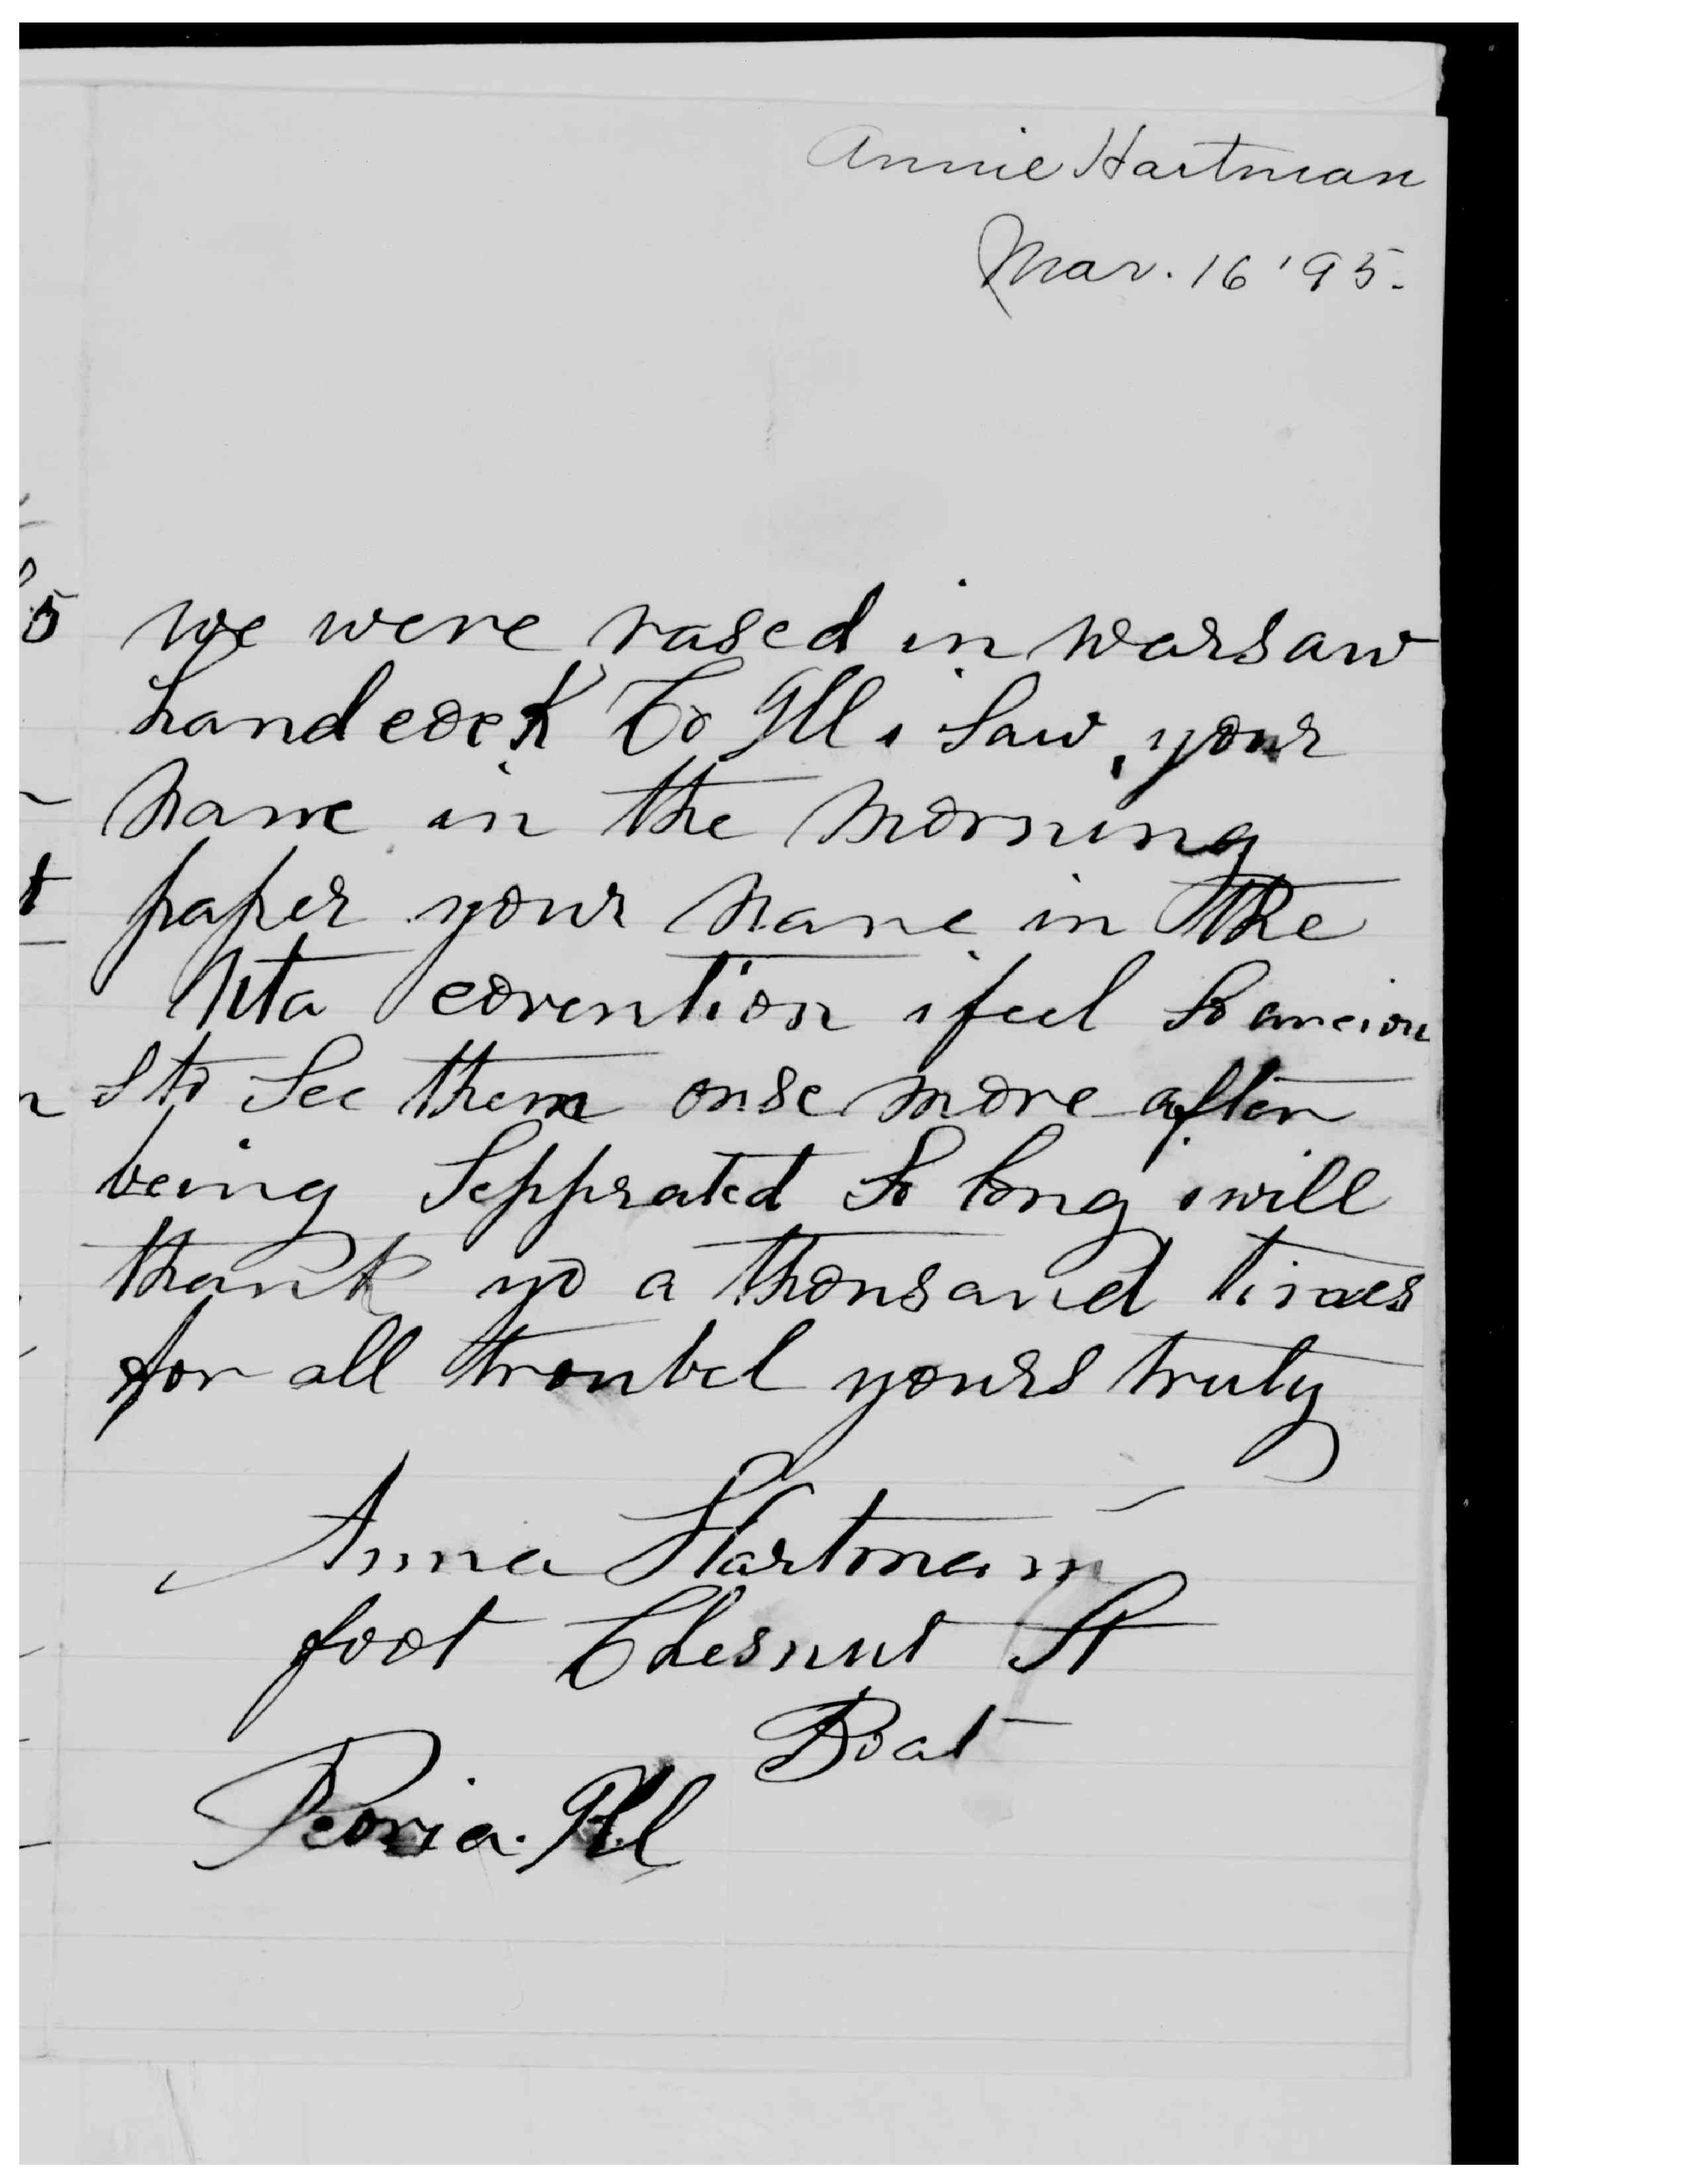 Annie Hartman
Mar. 16 '95.
we were rased in warsaw
handcock Co Ill i saw your
name in the morning
paper your name in the
Uta convention i feel so anciou
s to see them onse more after
being sepprated so long i will
thank yo a thousand times
for all troubel yours truly
Anna Hartman
foot Chesnut St
Boat
Peoria. Ill